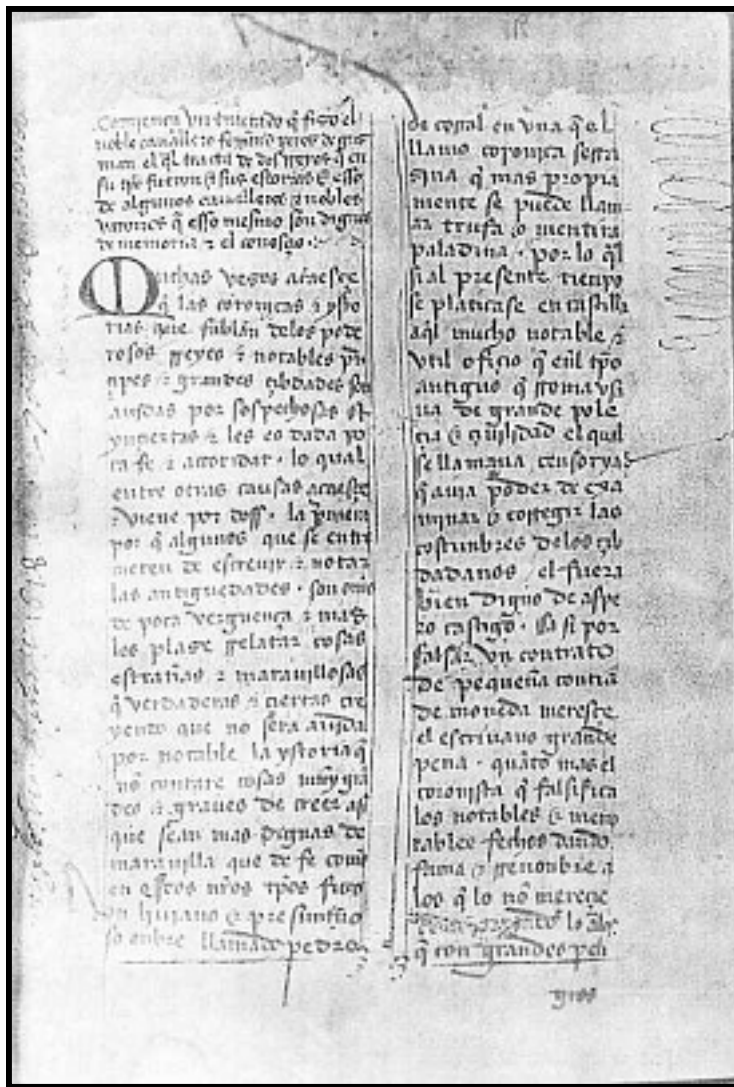 Comiença un tractado q̃ fiso el
noble cauallero fernand peres de gus
man el q̃l tracta de dos rreyes q̃ en
su tpo fueron & sus estorias & esso
de algunos caualleros & nobles
varones q̃ esso mesmo son dignos
de memoria &
Muchas veses acaesçe
q̃ las coronicas & ysto
rias que fablan delos pode
rosos rreyes & notables prin
çipes & grandes çibdades son
auidas por sospechosas &
ynçiertas & les es dada po
ca fe & actoridat · lo qual
entre otras causas acaesçe
& viene por doss · la primera
por q̃ algunos que se entre
meten de escreuir & notar
las antiguedades · son onbres
de poca verguença & mas
les plase rrelatar cosas
estrañas & marauillosas
q̃ verdaderas & çiertas cre
yendo que non sera auida
por notable la ystoria q̃
nõ contare cosas muy grã
des & graues de creer asi
que sean mas dignas de
marauilla que de fe como
en estos nr̃os tp̃os fizo
un liuiano & presuntuo
so onbre llamado pedro
de corral en vna q̃ el
llamo coronica serra
sina q̃ mas propia
mente se puede llam
ar trufa o mentira
paladina · por lo q̃l
si al presente tienpo
se platicase en castilla
aq̃l mucho notable &
vtil ofiçio q̃ eñl tp̃o
antiguo q̃ rroma vsa
ua de grande poli
çia & çiuilidad el qual
se llamaua çensorya
q̃ auia poder de exa
minar & corregir las
costunbres delos çib
dadanos el fuera
bien digno de aspe
ro castigo · Ca si por
falsar vn contrato
de pequeña contia
de moneda meresçe
el escriuano grande
pena · quãto mas el
coronista q̃ falsifica
los notables & memo
rables fechos dando
fama & rrenonbre a
los q̃ lo nõ mereçen
lo
q̃ con grandes peli
gros